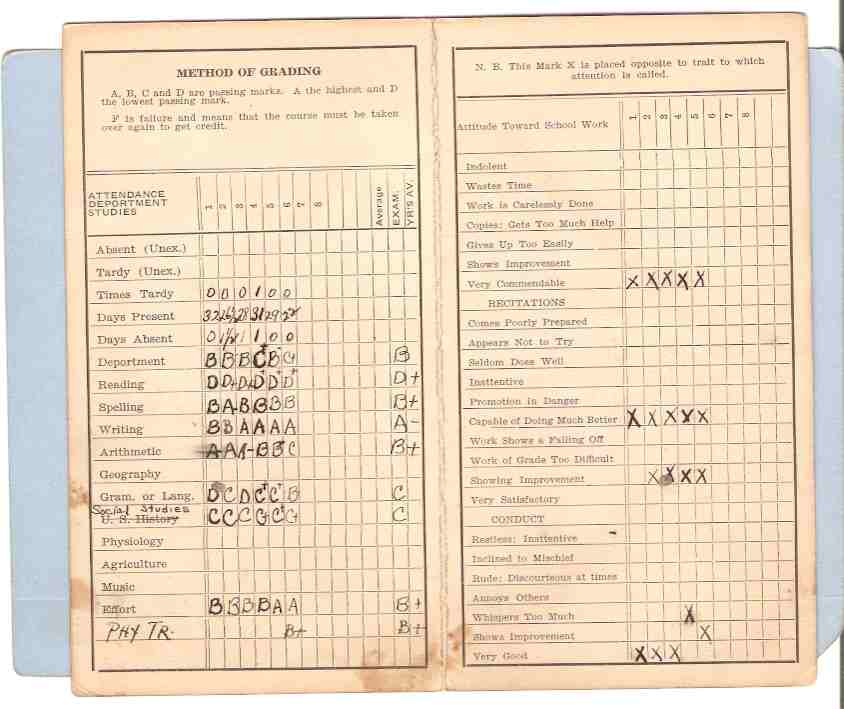 METHOD OF GRADING
A, B, C and D are passing marks. A the highest and D
the lowest passing mark.
F is failure and means that the course must be taken
over again to get credit.
ATTENDANCE
DEPORTMENT
STUDIES
1 2 3 4 5 6 7 8 Average EXAM. YR'S AV.
Absent (Unex.)
Tardy (Unex.)
Times Tardy 0 0 0 1 0 0
Days Present 32 28 31 29
Days Absent 0 1 1 0 0
Deportment B B B C B B
Reading D D+ D+ D D+ D+ D+
Spelling B A B B B B B+
Writing B B A A A A A-
Arithmetic A A A- B B+ C B+
Geography
Gram. or Lang. D C D C+ C+ B C
Social Studies
U. S. History C C C C+ C
Physiology
Agriculture
Music
Effort B B B B A A B+
PHY TR. B+ B+
N. B. This Mark X is placed opposite to trait to which
attention is called.
Attitude Toward School Work 1 2 3 4 5 6 7 8
Indolent
Wastes Time
Work is Carelessly Done
Copies: Gets Too Much Help
Gives Up Too Easily
Shows Improvement
Very Commendable X X X X X
RECITATIONS
Comes Poorly Prepared
Appears Not to Try
Seldom Does Well
Inattentive
Promotion in Danger
Capable of Doing Much Better X X X X X
Work Shows a Falling Off
Work of Grade Too Difficult
Showing Improvement X X X X
Very Satisfactory
CONDUCT
Restless: Inattentive
Inclined to Mischief
Rude: Discourteous at times
Annoys Others
Whispers Too Much X
Shows Improvement X
Very Good X X X